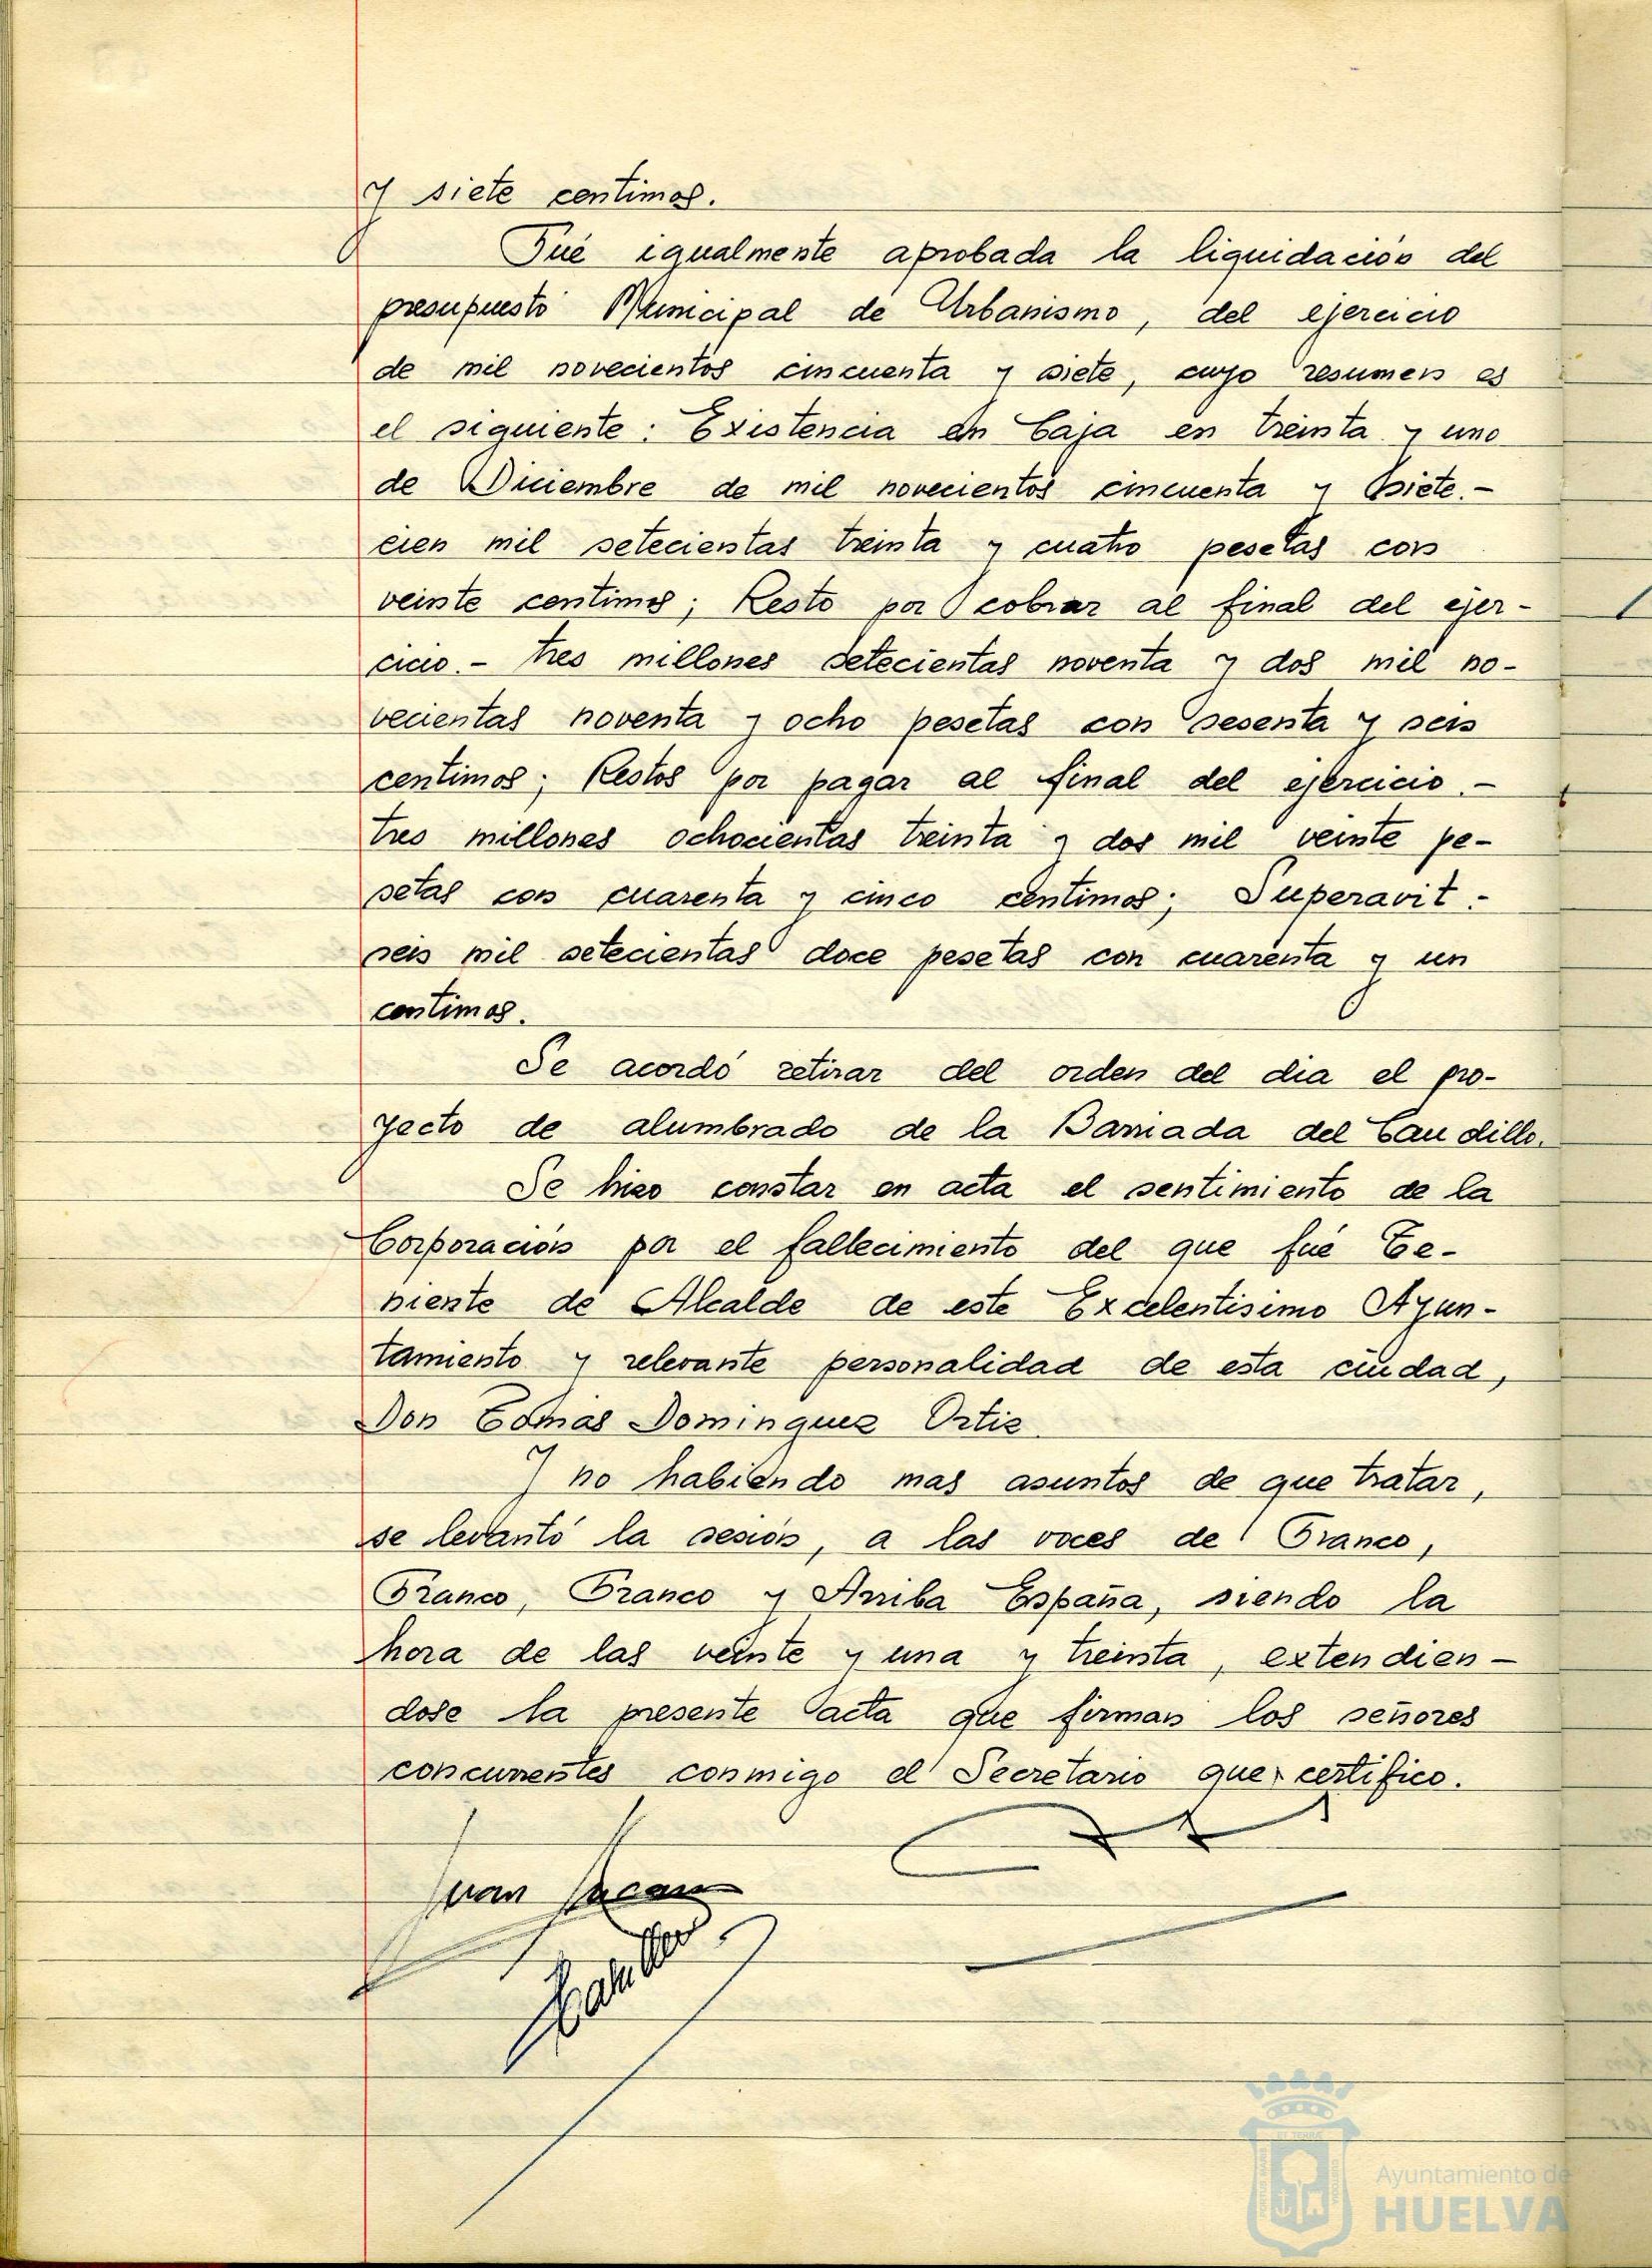 y siete centimos.
Fué igualmente aprobada la liquidación del
presupuesto Municipal de Urbanismo, del ejercicio
de mil novecientos cincuenta y siete, cuyo resumen es
el siguiente: Existencia en Caja en treinta y uno
de Diciembre de mil novecientos cincuenta y siete.-
cien mil setecientas treinta y cuatro pesetas con
veinte centimos; Resto por cobrar al final del ejer-
cicio.- tres millones setecientas noventa y dos mil no-
vecientas noventa y ocho pesetas con sesenta y seis
centimos; Restos por pagar al final del ejercicio.-
tres millones ochocientas treinta y dos mil veinte pe-
setas con cuarenta y cinco centimos; Superavit.-
seis mil setecientas doce pesetas con cuarenta y un
centimos.
Se acordó retirar del orden del dia el pro-
yecto de alumbrado de la Barriada del Caudillo.
Se hizo constar en acta el sentimiento de la
Corporación por el fallecimiento del que fué Te-
niente de Alcalde de este Excelentisimo Ayun-
tamiento y relevante personalidad de esta ciudad,
Don Tomas Dominguez Ortiz.
Y no habiendo mas asuntos de que tratar,
se levantó la sesión, a las voces de Franco,
Franco, Franco y Arriba España, siendo la
hora de las veinte y una y treinta, extendien-
dose la presente acta que firman los señores
concurrentes conmigo el Secretario que certifico.
Juan
Ayuntamiento de
HUELVA